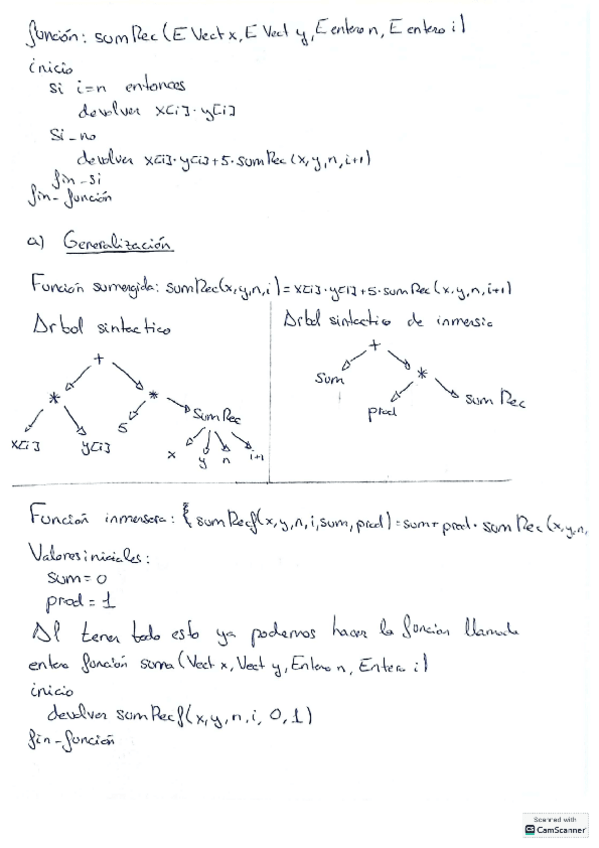 función: sumRec(E Vect x, E Vect y, E entero n, E entero i)
inicio
si i=n entonces
devolver x[i]·y[i]
Si-no
devolver x[i]·y[i]+5·sumRec(x,y,n,i+1)
fin-si
fin-función
a) Generalización
Función sumergida: sumRec(x,y,n,i)=x[i]·y[i]+5·sumRec(x,y,n,i+1)
Arbol sintactico
+
*
*
x[i]
y[i]
5
SumRec
x
y
n
i+1
Arbol sintactico de inmersio
+
Sum
*
prod
sumRec
Función inmersora: { sumRecf(x,y,n,i,sum,prod)=sum+prod·sumRec(x,y,n,
Valores iniciales:
sum=0
prod=1
Al tener todo esto ya podemos hacer la función llamada
entero función suma(Vect x, Vect y, Entero n, Entero i)
inicio
devolver sumRecf(x,y,n,i,0,1)
fin-función
Scanned with
CS CamScanner